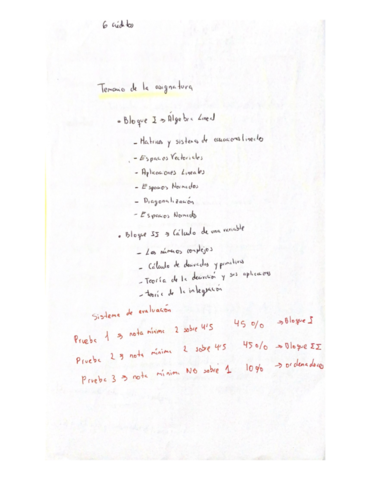 6 crédito
Temario de la asignatura
• Bloque I → Álgebra Lineal
- Matrices y sistemas de ecuaciones lineales
- Espacios Vectoriales
- Aplicaciones Lineales
- Espacios Normados
- Diagonalización
- Espacios Normado
• Bloque II → Cálculo de una variable
- Los números complejos
- Cálculo de derivadas y primitivas
- Teoría de la derivación y sus aplicaciones
- teoria de la integración
Sistema de evaluación
Prueba 1 → nota mínima 2 sobre 4'5 45% → Bloque I
Prueba 2 → nota mínima 2 sobre 4'5 45% → Bloque II
Prueba 3 → nota mínima NO sobre 1 10% → ordenadores